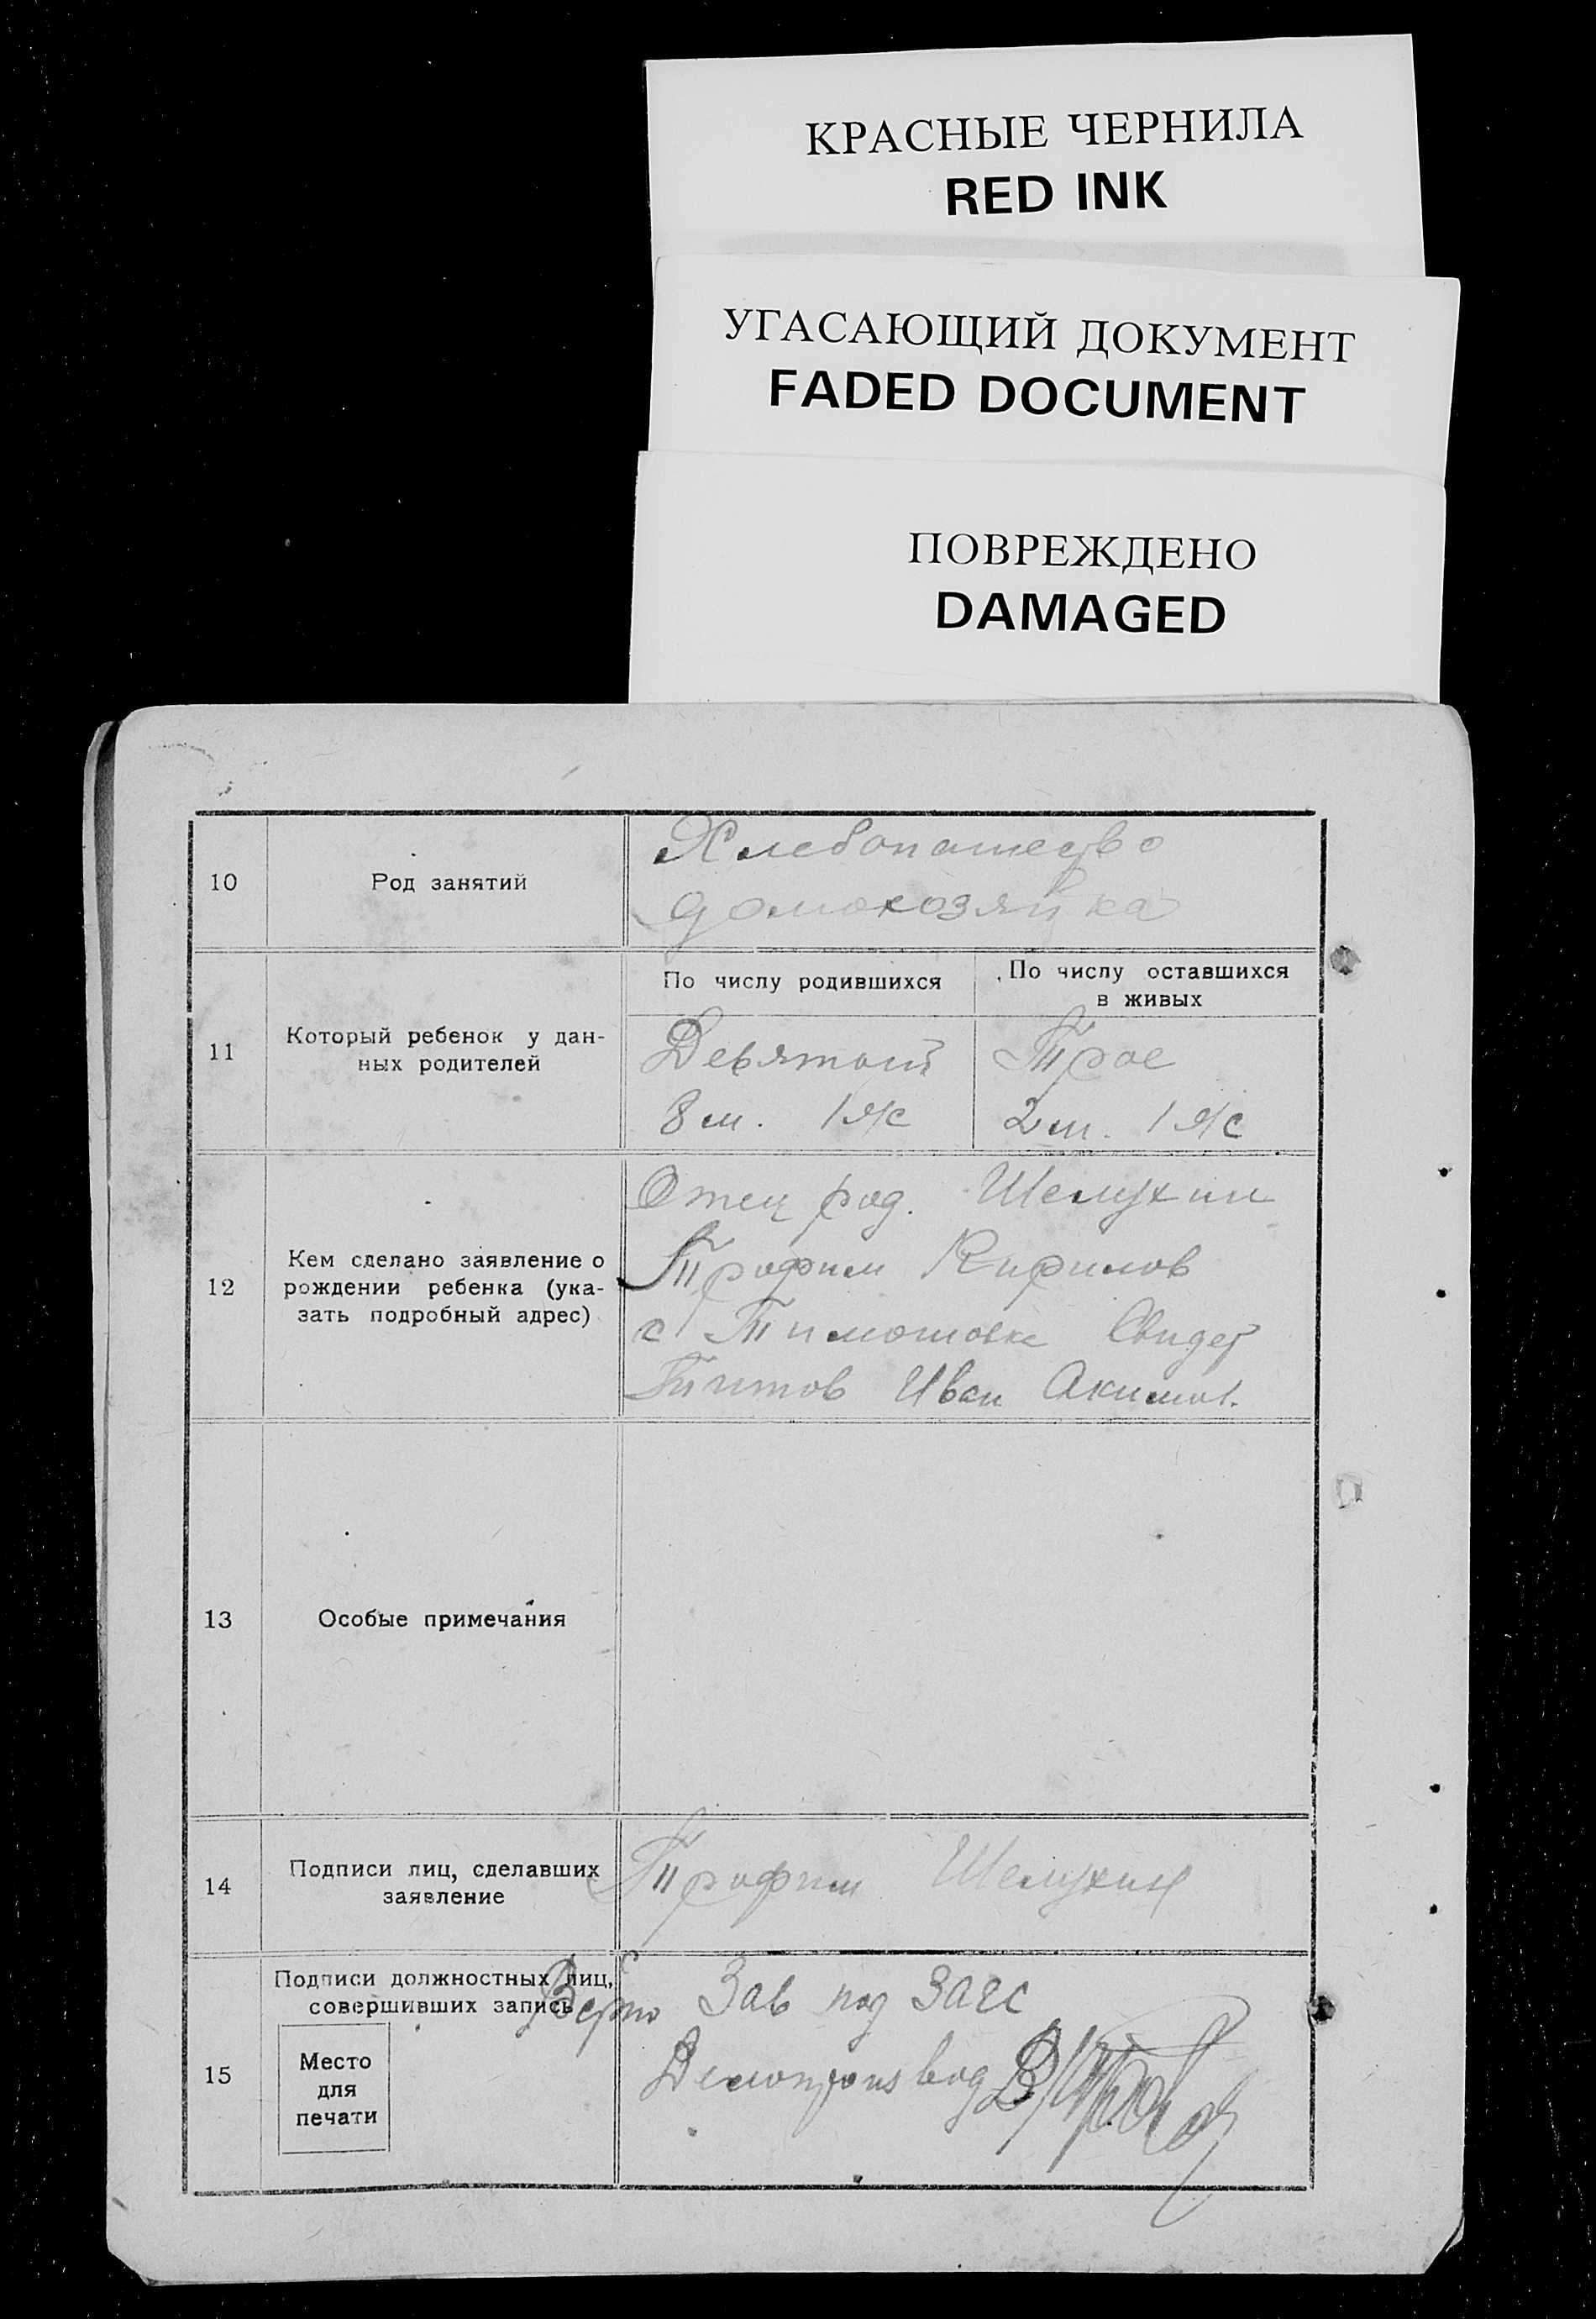 КРАСНЫЕ ЧЕРНИЛА
RED INK
УГАСАЮЩИЙ ДОКУМЕНТ
FADED DOCUMENT
ПОВРЕЖДЕНО
DAMAGED
10
Род занятий
Хлебопашество
домохозяйка
11
Который ребенок у дан-
ных родителей
По числу родившихся
Девятый
8 м. 1 ж
По числу оставшихся
в живых
Трое
2 м. 1 ж
12
Кем сделано заявление о
рождении ребенка (ука-
зать подробный адрес)
Отец род. Шелухин
Трофим Кирилов
с Тимошовка Свидет
Титов Иван Акимов.
13
Особые примечания
14
Подписи лиц, сделавших
заявление
Трофим Шелухин
15
Подписи должностных лиц,
совершивших запись
Место
для
печати
Верно Зав под Загс
Делопроизвод